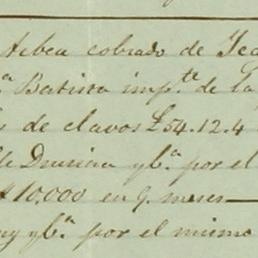 Aebea cobrado de Teo
ª Batista impte. de la
s de clavos £54.12.4
y Ca. por el
$10.000 en 9. meses
y Ca. por el mismo